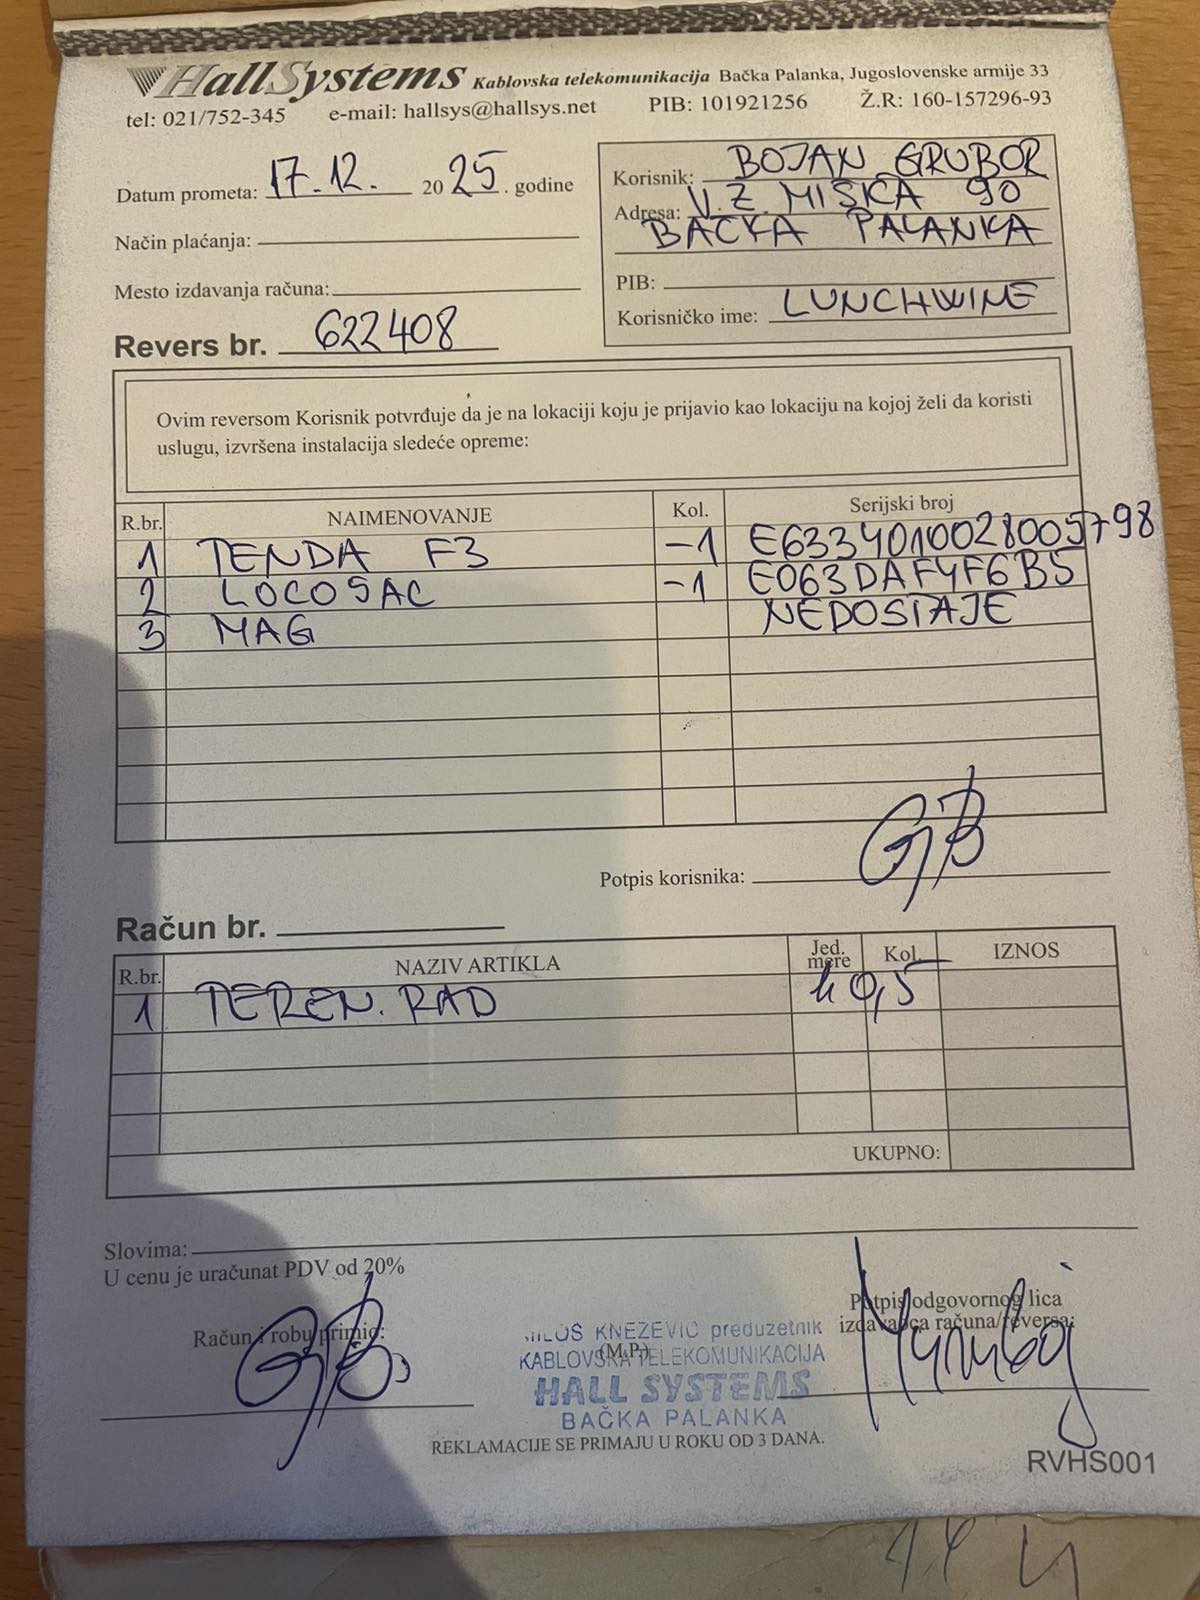 HallSystems Kablovska telekomunikacija Bačka Palanka, Jugoslovenske armije 33
tel: 021/752-345 e-mail: hallsys@hallsys.net PIB: 101921256 Ž.R: 160-157296-93
Datum prometa: 17.12. 2025. godine
Način plaćanja:
Mesto izdavanja računa:
Revers br. 622408
Korisnik: BOJAN GRUBOR
Adresa: V.Ž. MIŠIĆA 90
BAČKA PALANKA
PIB:
Korisničko ime: LUNCHWINE
Ovim reversom Korisnik potvrđuje da je na lokaciji koju je prijavio kao lokaciju na kojoj želi da koristi
uslugu, izvršena instalacija sledeće opreme:
R.br. NAIMENOVANJE Kol. Serijski broj
1 TENDA F3 -1 E6334010028005798
2 LOCO5AC -1 E063DAF4F6B5
3 MAG NEDOSTAJE
Potpis korisnika:
Račun br.
R.br. NAZIV ARTIKLA Jed. mere Kol. IZNOS
1 TEREN. RAD h 0,5
UKUPNO:
Slovima:
U cenu je uračunat PDV od 20%
Račun i robu primio:
(M.P.)
Potpis odgovornog lica
izdavaoca računa/reversa:
MILOŠ KNEŽEVIĆ preduzetnik
KABLOVSKA TELEKOMUNIKACIJA
HALL SYSTEMS
BAČKA PALANKA
REKLAMACIJE SE PRIMAJU U ROKU OD 3 DANA.
RVHS001